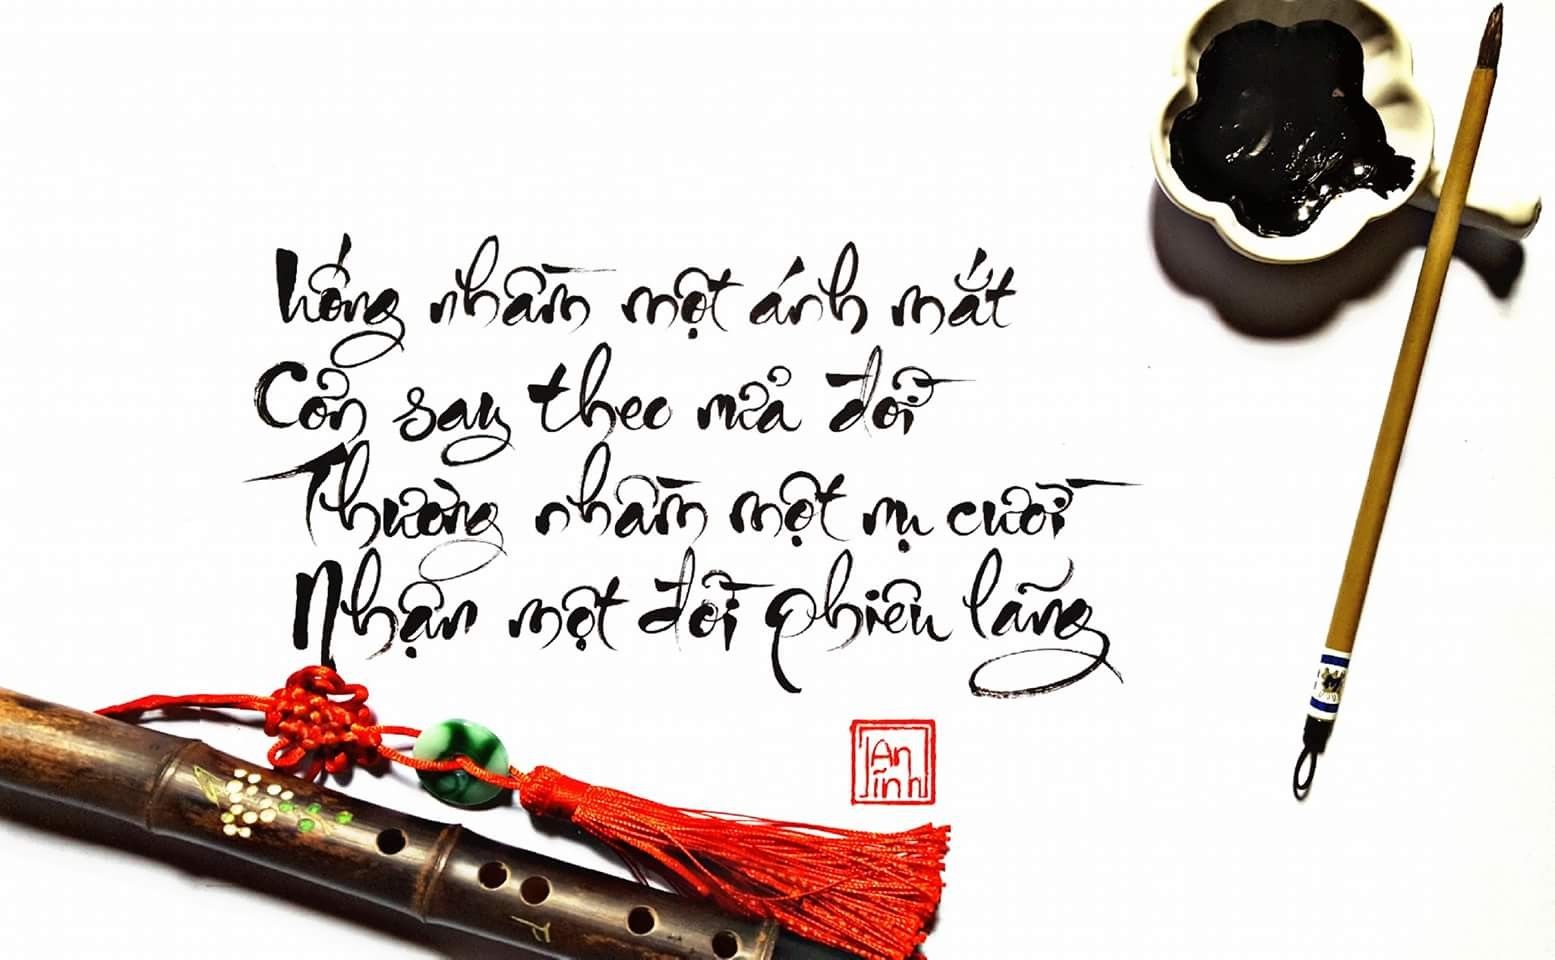 Uống nhầm một ánh mắt
Cơn say theo nửa đời
Thương nhầm một nụ cười
Nhận một đời phiêu lãng
An
Tĩnh